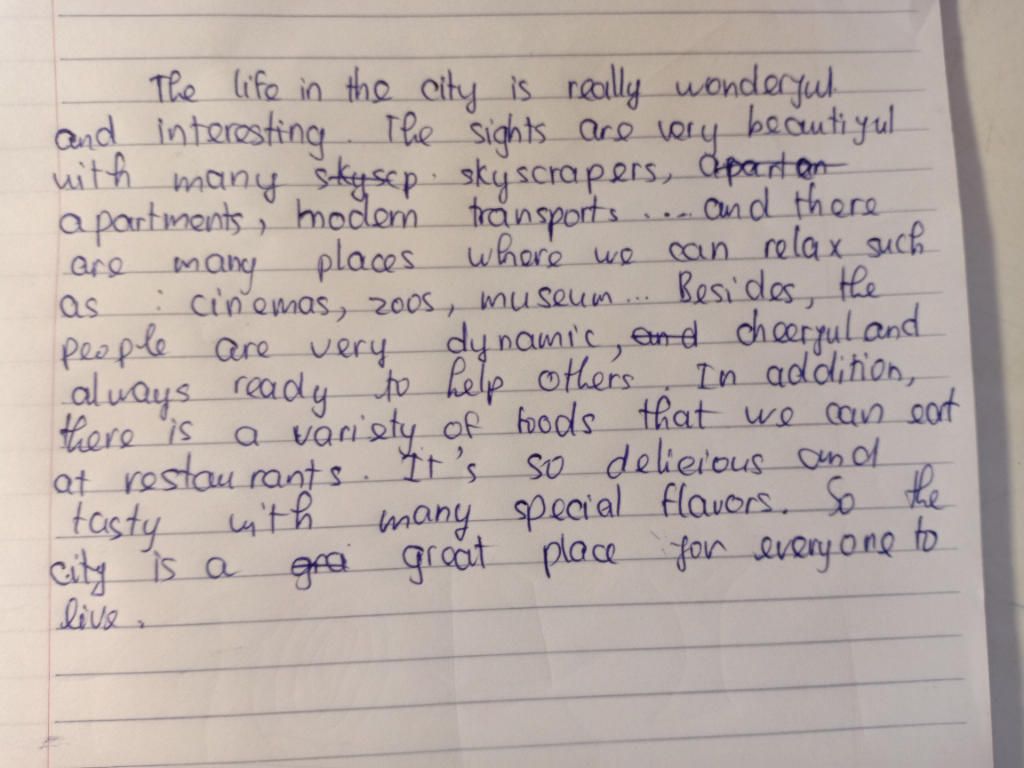 The life in the city is really wonderful
and interesting. The sights are very beautiful
with many skyscp. skyscrapers, aparten
apartments, modern transports .... and there
are many places where we can relax such
as : cinemas, zoos, museum... Besides, the
people are very dynamic, and cheerful and
always ready to help others. In addition,
there is a variety of foods that we can eat
at restaurants. It's so delicious and
tasty with many special flavors. So the
city is a grea great place for everyone to
live.